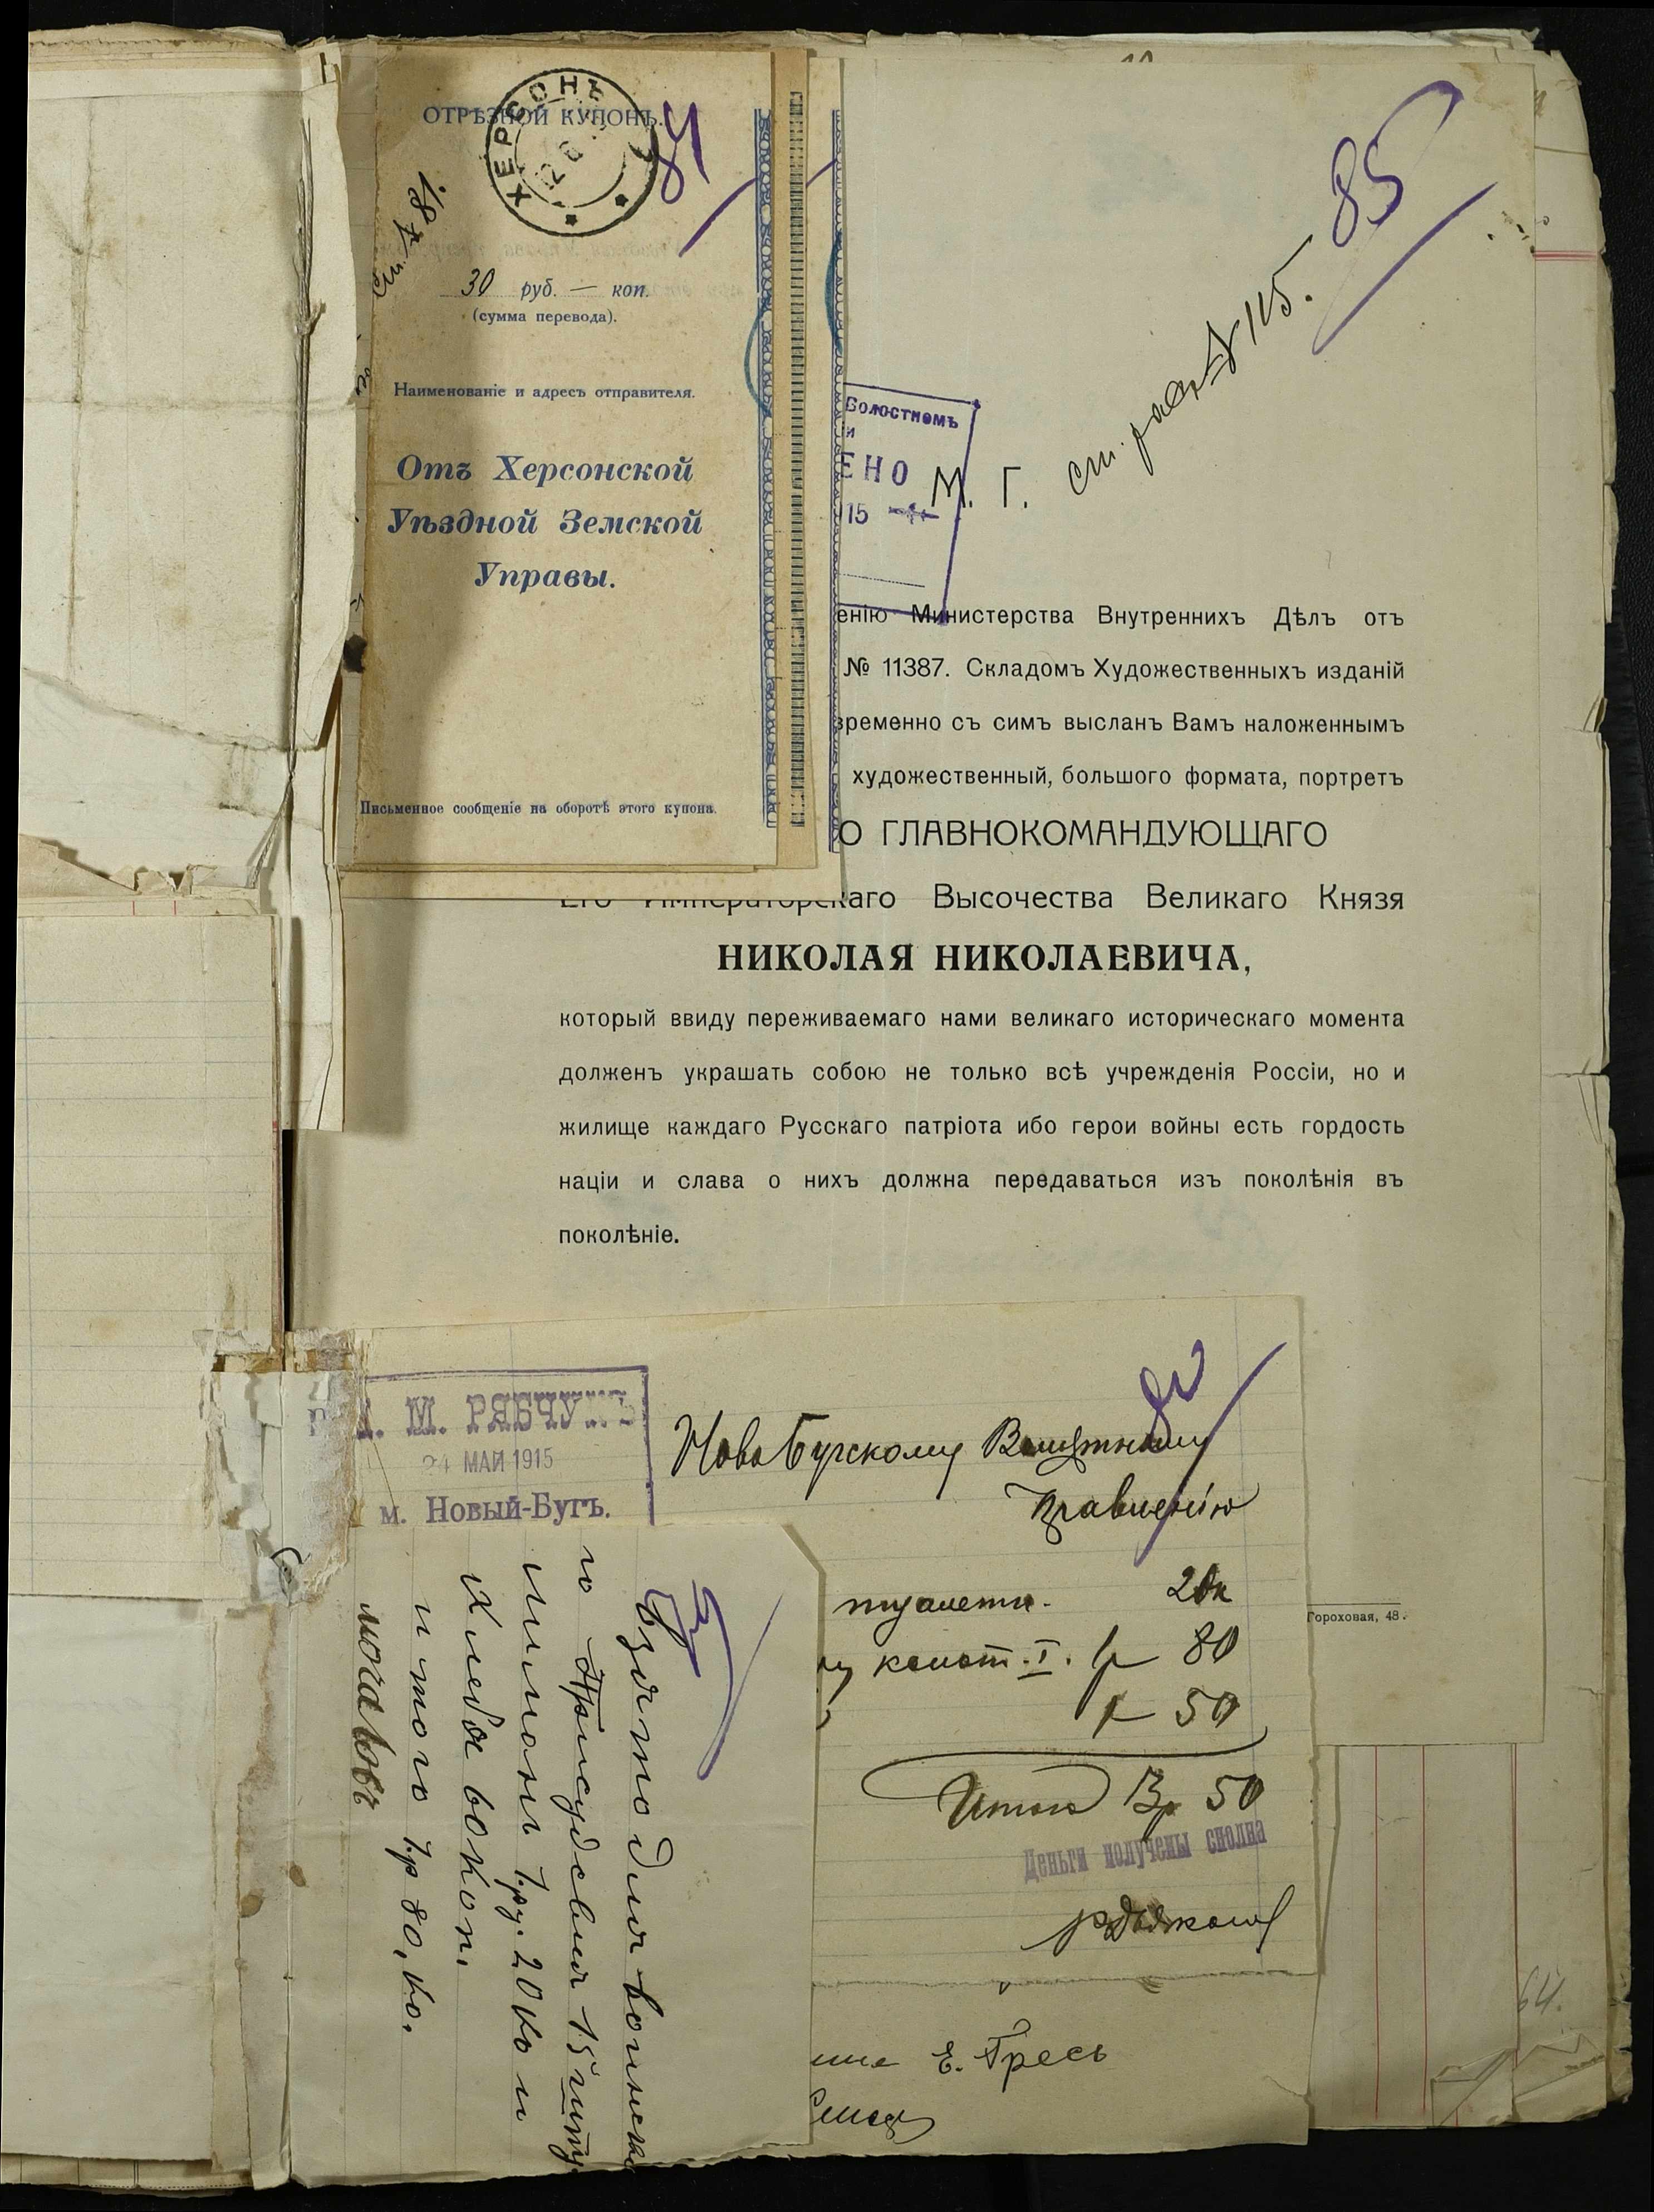 ОТРѢЗНОЙ КУПОНЪ.
ХЕРСОНЪ
12 6
84
30 руб. — коп.
(сумма перевода).
Наименованіе и адресъ отправителя.
Отъ Херсонской
Уѣздной Земской
Управы.
Письменное сообщеніе на оборотѣ этого купона.
85
115.
Волостномъ
и
ЕНО
15
М. Г.
енію Министерства Внутреннихъ Дѣлъ отъ
№ 11387. Складомъ Художественныхъ изданій
временно съ симъ высланъ Вамъ наложеннымъ
художественный, большого формата, портретъ
О ГЛАВНОКОМАНДУЮЩАГО
Его Императорскаго Высочества Великаго Князя
НИКОЛАЯ НИКОЛАЕВИЧА,
который ввиду переживаемаго нами великаго историческаго момента
долженъ украшать собою не только всѣ учрежденія Россіи, но и
жилище каждаго Русскаго патріота ибо герои войны есть гордость
націи и слава о нихъ должна передаваться изъ поколѣнія въ
поколѣніе.
М. РЯБЧУКЪ
24 МАЙ 1915
м. Новый-Бугъ.
Ново Бугскому Волостному
Правленію
20к
80
50
Итого 3р 50
Деньги получены сполна
Гороховая, 48.
Е. Гресь
83
Взято для воинск
го Присудсвия 15 шту
лимонъ 1.ру. 20 ко и
Хлеба 60 коп.
итого 1.р 80, ко.
64.